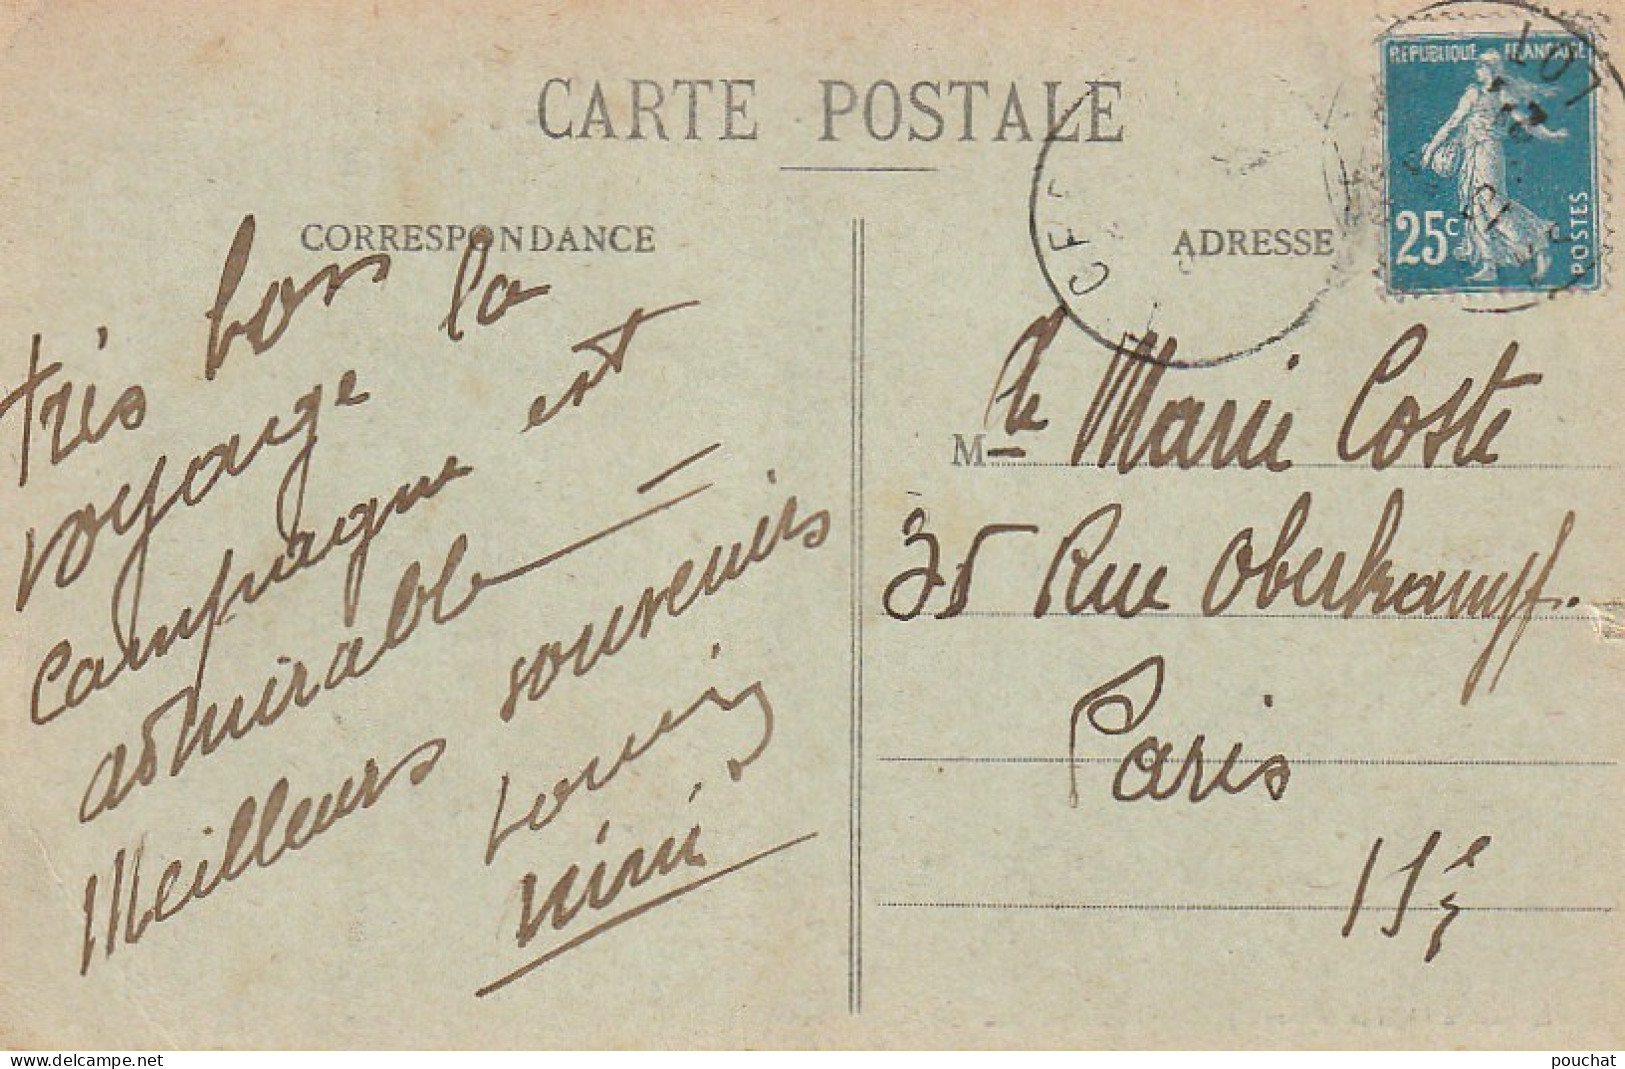 CARTE POSTALE
CORRESPONDANCE
ADRESSE
REPUBLIQUE FRANÇAISE
25c
POSTES
LOT
très bon
voyage la
campagne est
admirable =
Meilleurs souvenirs
Mimi
Mlle Marie Coste
35 Rue Oberkampf.
Paris
11e
delcampe.net
pouchat